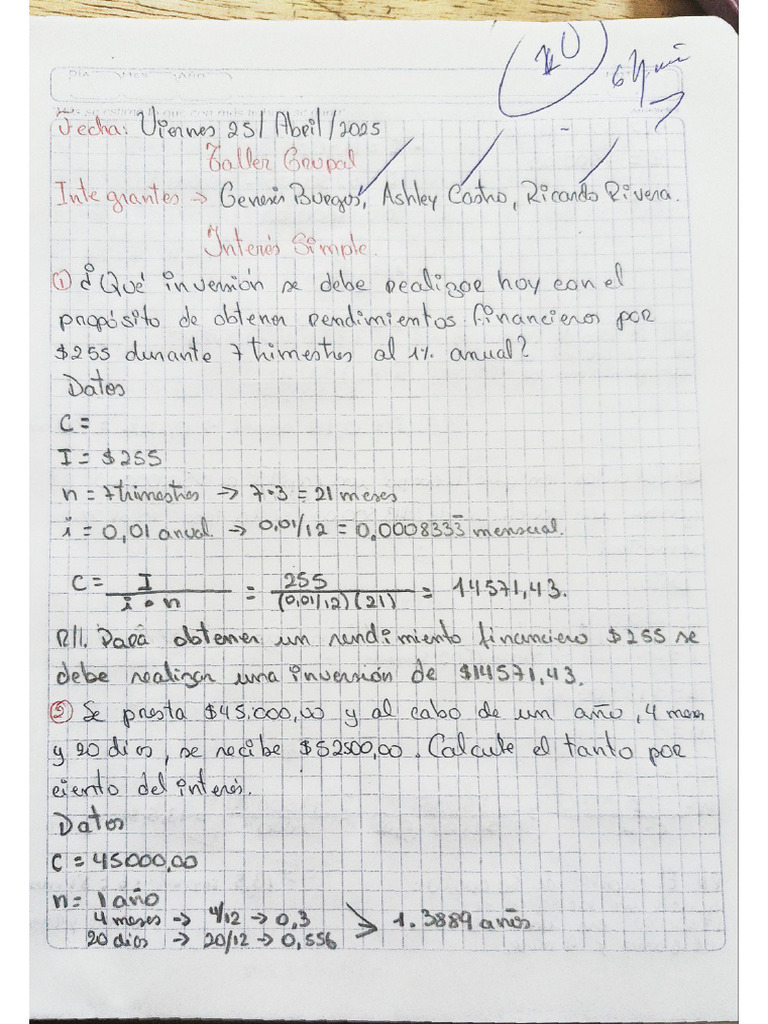 10
DIA MES AÑO
Fecha: Viernes 25/Abril/2025
Taller Grupal
Integrantes → Genesis Burgos, Ashley Castro, Ricardo Rivera.
Interés Simple.
① ¿Qué inversión se debe realizar hoy con el
propósito de obtener rendimientos financieros por
$255 durante 7 trimestres al 1% anual?
Datos
C =
I = $255
n = 7 trimestres → 7·3 = 21 meses
i = 0,01 anual → 0,01/12 = 0,0008333̅ mensual.
C = I / i · n = 255 / (0,01/12)(21) = 14571,43.
R//. Para obtener un rendimiento financiero $255 se
debe realizar una inversión de $14571,43.
② Se presta $45.000,00 y al cabo de un año, 4 meses
y 20 dios, se recibe $52500,00. Calcule el tanto por
ciento del interés.
Datos
C = 45000,00
n = 1 año
4 meses → 4/12 → 0,3 > 1.3889 años
20 dios → 20/12 → 0,556